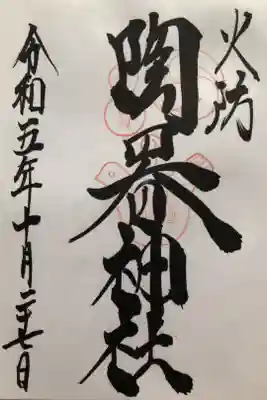 火防
陶器神社
令和五年十月二十七日